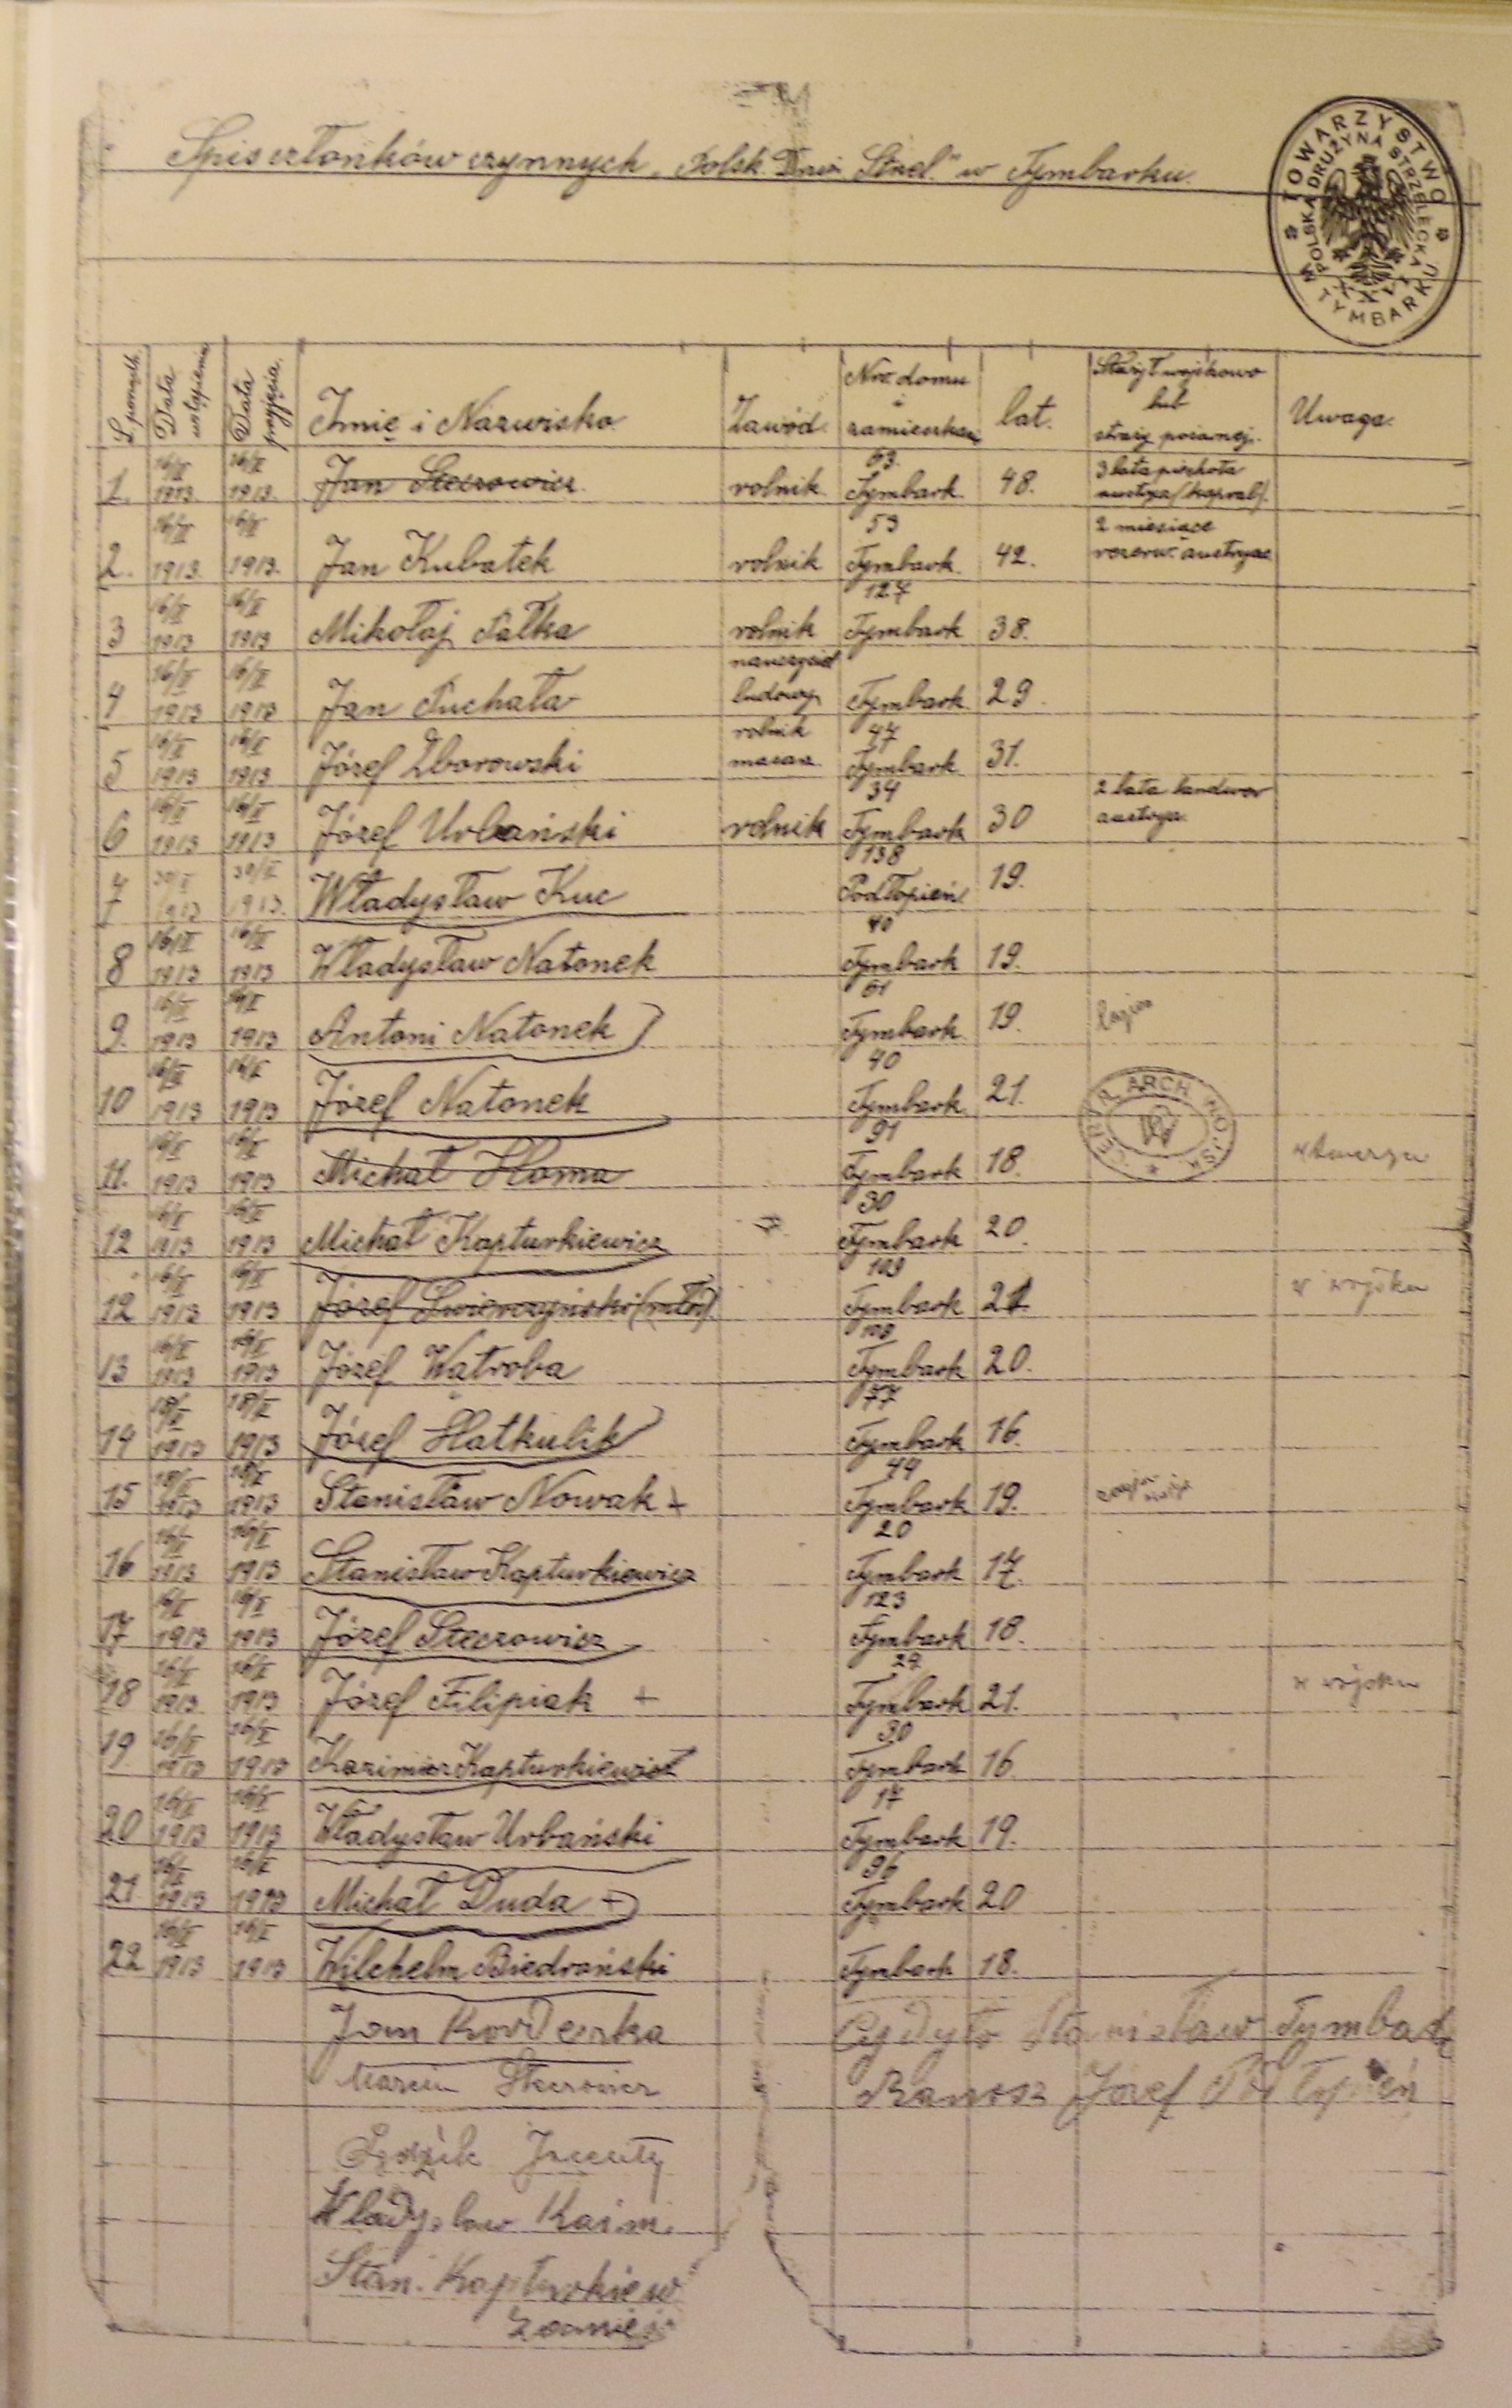 Spis członków czynnych „Polsk. Druż. Strzel." w Tymbarku.
TOWARZYSTWO
POLSKA DRUŻYNA STRZELECKA
XXVI
W TYMBARKU
L. porządk. Data wstąpienia Data przyjęcia. Imię i Nazwisko Zawód. Nro. domu i zamieszkan. lat. Służył wojskowo lub straży pożarnej. Uwaga.
1. 16/II 1913. 16/II 1913. Jan Steczowicz. rolnik. 63. Tymbark. 48. 3 lata piechota austrya (kapral).
2. 16/II 1913. 16/II 1913. Jan Kubatek rolnik 53 Tymbark. 42. 2 miesiące rezerw. austryac.
3 16/II 1913 16/II 1913 Mikołaj Pałka rolnik 127 Tymbark 38.
4 16/II 1913 16/II 1913 Jan Puchała nauczyciel ludowy Tymbark 29.
5 16/II 1913 16/II 1913 Józef Zborowski rolnik masarz. 47 Tymbark. 31.
6 16/II 1913 16/II 1913 Józef Urbański rolnik 34 Tymbark 30 2 lata landwer austrya.
7 1913 1913. Władysław Kuc 138 Podłopień 19.
8 16/II 1913 16/II 1913 Władysław Natonek 40 Tymbark 19.
9. 16/II 1913 16/II 1913 Antoni Natonek 61 Tymbark 19.
10 16/II 1913 16/II 1913 Józef Natonek 40 Tymbark. 21.
CENTR. ARCH. WOJSK
11. 16/II 1913 16/II 1913 Michał Homa 91 Tymbark 18.
12 16/II 1913 16/II 1913 Michał Kapturkiewicz 30 Tymbark 20.
12 16/II 1913 16/II 1913 Józef Świerczyński (młod). 109 Tymbark 21. w wojsku
13 16/II 1913 16/II 1913 Józef Wątroba 108 Tymbark 20.
14 18/II 1913 18/II 1913 Józef Hatkulik 77 Tymbark 16.
15 18/II 1913 18/II 1913 Stanisław Nowak + 44 Tymbark 19.
16 16/II 1913 16/II 1913 Stanisław Kapturkiewicz 20 Tymbark 17.
17 16/II 1913 16/II 1913 Józef Steczowicz 123 Tymbark 18.
18 16/II 1913. 16/II 1913 Józef Filipiak + 29 Tymbark 21. w wojsku
19. 16/II 1913 16/II 1913 Kazimierz Kapturkiewicz 30 Tymbark 16
20 16/II 1913 16/II 1913 Władysław Urbański 17 Tymbark 19.
21 16/II 1913 16/II 1913 Michał Duda + 96 Tymbark 20
22 16/II 1913 16/II 1913 Wilchelm Biedroński Tymbark 18.
Jan Kordeczka Stanisław Tymbark
Marcin Steczowicz Józef
Władysław Kaim.
Stan. Kapturkiew